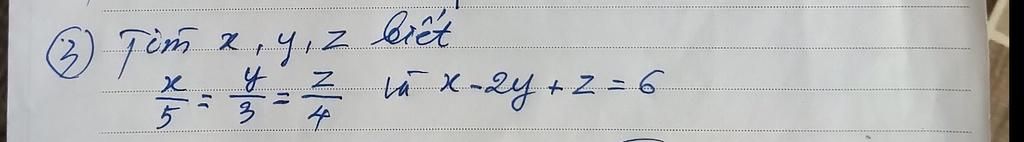 ③ Tìm x, y, z biết
x/5 = y/3 = z/4 và x - 2y + z = 6